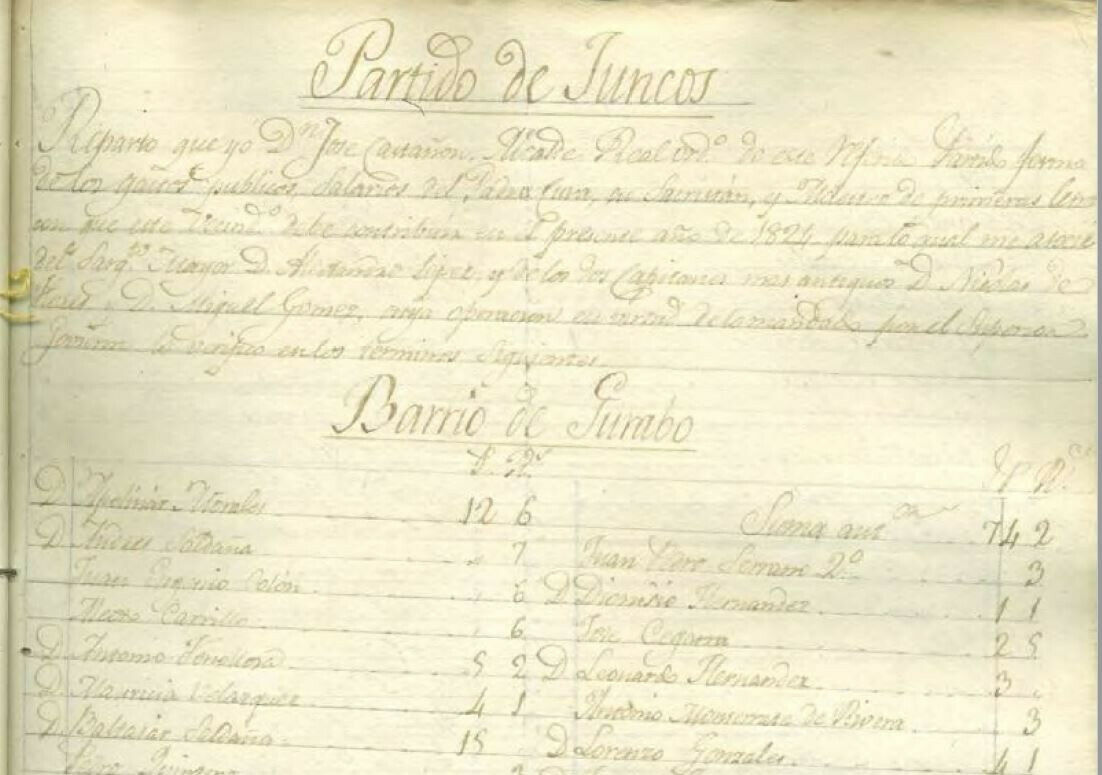 Partido de Juncos
Reparto que yo Dn Jose Castañon Alcalde Real ordo de este Partido forma
de los gastos publicos, Salarios del Padre Cura, su Sacristán, y Maestro de primeras letras
con que este Vecindo debe contribuir en el presente año de 1824 para lo qual me asocié
del Sargto Mayor D. Alejandro Lopez y de los dos Capitanes mas antiguos D. Nicolas de
Flores y D. Miguel Gomez, cuya operacion en virtud de lo mandado por el Superior
Govierno la verifico en los terminos siguientes
Barrio de Gurabo
P. Rs
D Apolinar Morales 12 6
D Andres Saldaña 7
Juan Colón 6
Carrillo 6
D Antonio 5 2
D Mauricia Velazquez 4 1
D Baltasar Saldaña 15
Pedro
P Rs
Suma antor 74 2
Juan Pedro Serrano 2o 3
D Dionisio Hernandez 1 1
Jose Cegarra 2 5
D Leonardo Hernandez 3
Antonio Monserrate de Rivera 3
D Lorenzo Gonzales 4 1